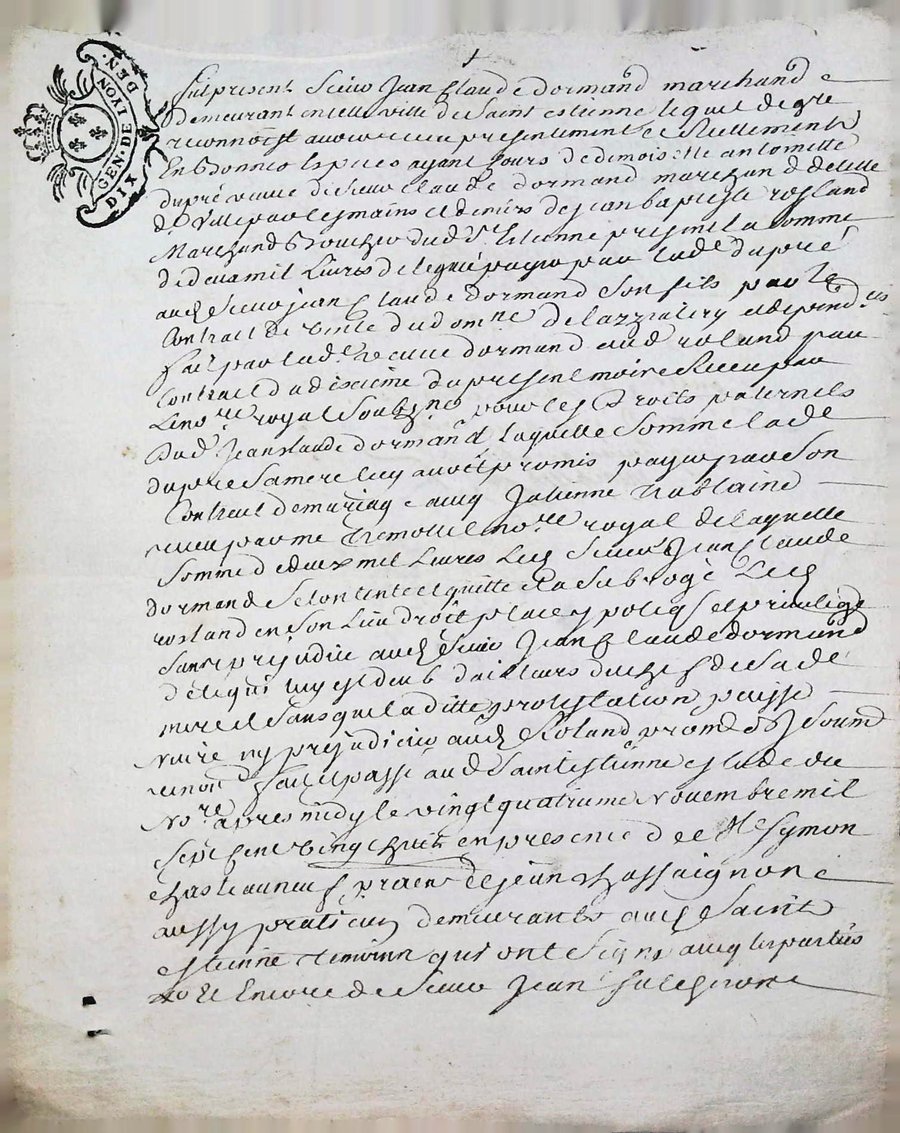 GEN. DE LYON
DIX DEN.
Fut present Sieur Jean Claude dormand marchand
demeurant en cette ville de Saint estienne lequel de gre
reconnoist avoir receu presentement et reellement
En bonnes especes ayant cours de demoiselle antoinette
dupré veuve de Sieur Claude dormand marchand de cette
de Ville par les mains et deniers de jean baptiste rolland
Marchand Boucher dud St Etienne present la somme
de deux mil Livres deleguée payer par lade dupré
aud Sieur jean Claude dormand Son fils par le
Contrait de vente du domne de lazzalery et depend.ces
fait par lade veuve dormand aud roland par
Contrait du dixieme du present mois Receu par
Le nore royal Soubzné pour les Droits paternels
Dud Jean Claude dormand Laquelle Somme lade
dupre Sa mere luy avoit promis payer par Son
Contrait de mariage avec Julienne Trablaine
receu par me Tremollet nore royal de laquelle
Somme de deux mil Livres Led Sieur Jean Claude
dormand Se contente et quitte et a Subrogé Led
rosland en Son Lieu droit place ypoteqs et privilege
Sans prejudice aud Sieur Jean Claude dormand
de ce qui luy est deub d'ailleurs du chef de Sade
mere et Sans que laditte protestation puisse
nuire ny prejudicier aud Roland prome obl Soum
renon fait et passé aud Saint estienne estude du
Nore apres midy le vingt quatrieme Novembre mil
Sept Cent vingt huit en presence de Me Symon
chasteauneuf praen et de jean Chassaignon
aussy praticien demeurants aud Saint
estienne temoins qui ont Signé avec les parties
Et Encore de Sieur Jean